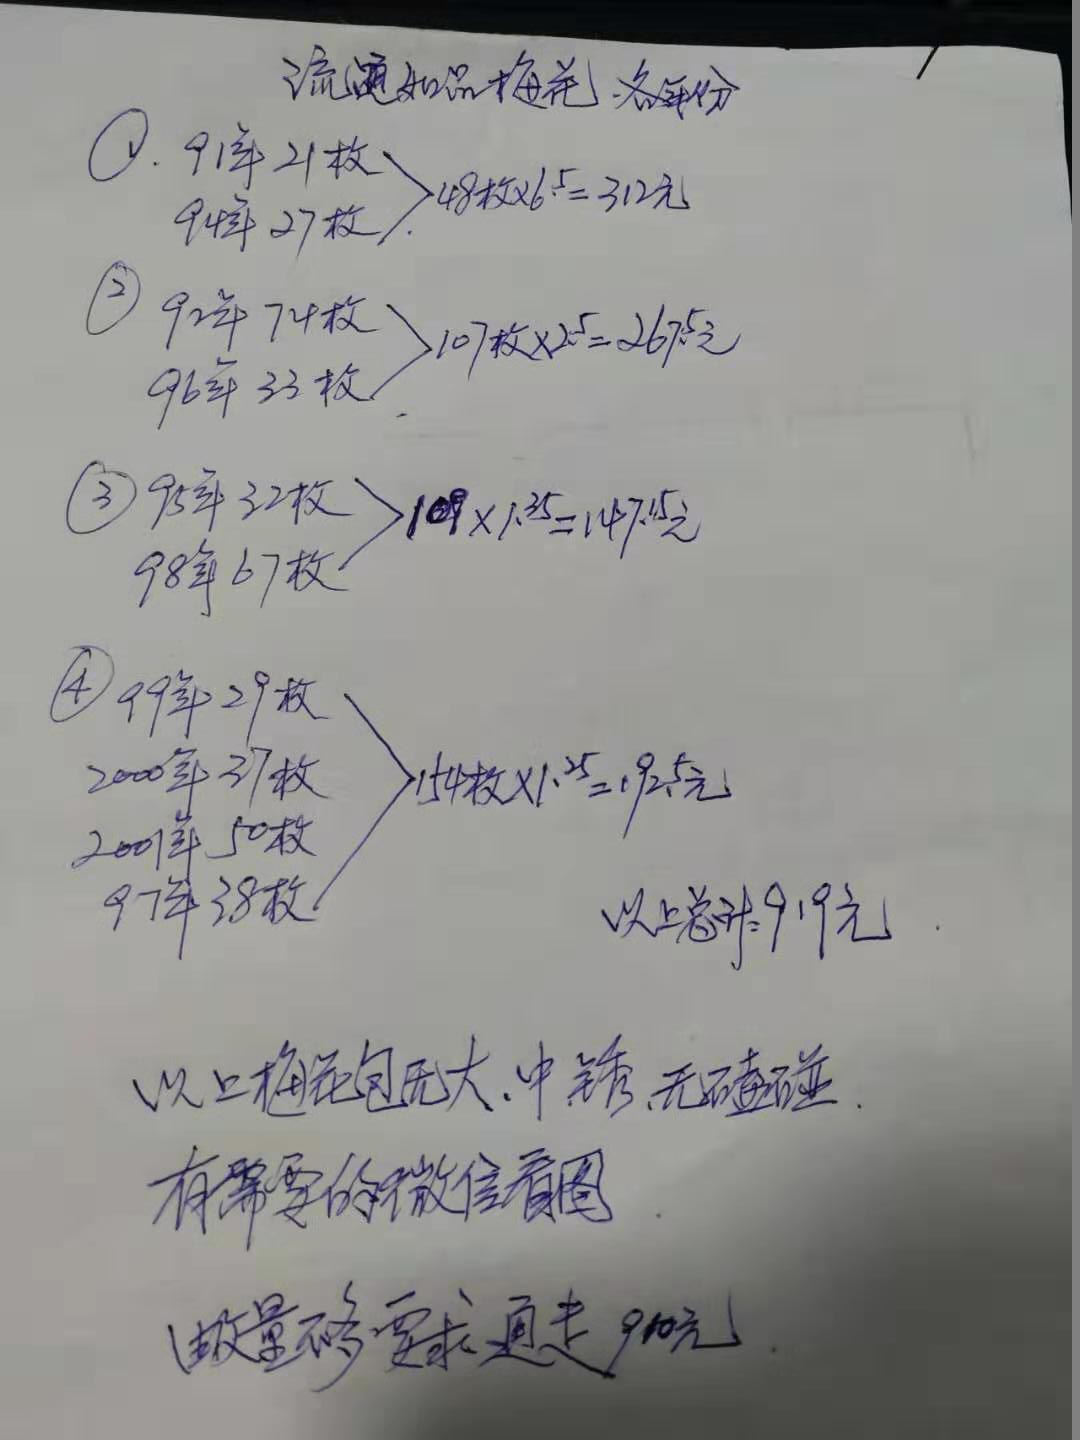 流通好品梅花各年份
①. 91年21枚
94年27枚
48枚×6.5=312元
② 92年74枚
96年33枚
107枚×2.5=267.5元
③ 95年32枚
98年67枚
109×1.35=147.15元
④ 99年29枚
2000年37枚
2001年50枚
97年38枚
154枚×1.25=192.5元
以上总计:919元
以上梅花包无大、中锈、无磕碰.
有需要的微信看图
由量不多要求通走910元